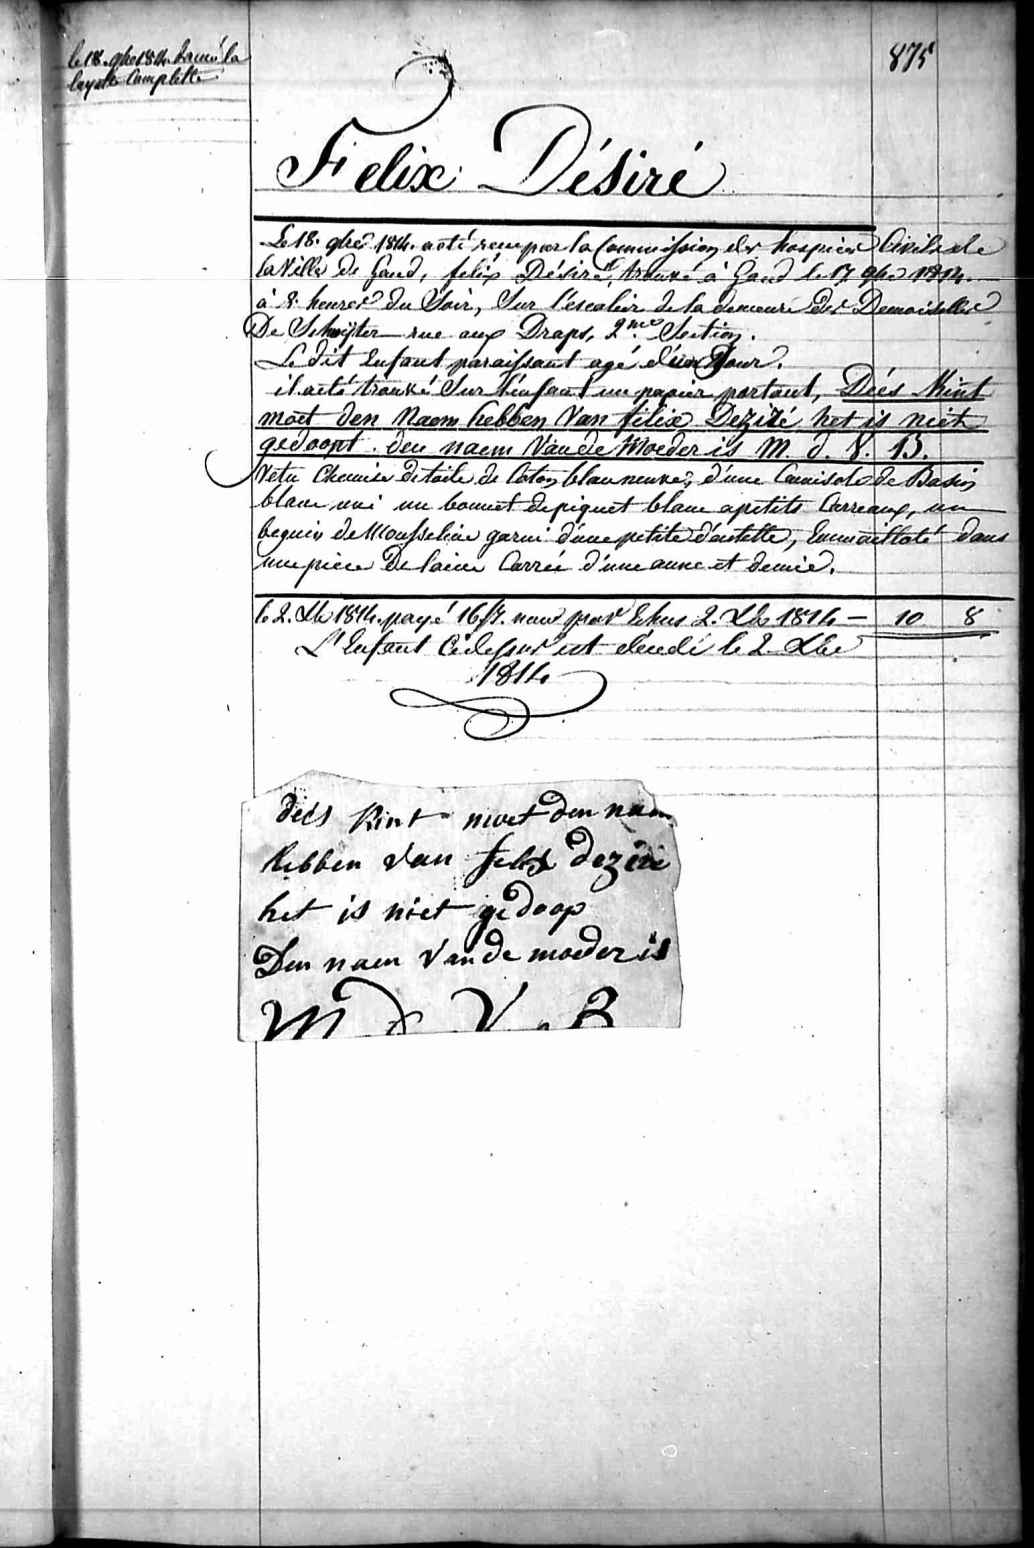 le 18. 9bre 1814. donné la
layette Complette
875
Felix Désiré
Le 18. 9bre 1814. a été reçu par la Commission des hospices Civils de
la Ville de Gand, felix Désiré, trouvé à Gand le 17 9bre 1814.
à 8. heures du Soir, Sur l'escalier de la demeure des Demoiselles
De Schuijter rue aux Draps, 2me Section.
Le dit Enfant paraissant agé d'un Jour.
il a été trouvé Sur l'enfant un papier portant, Dees Kint
moet den Naem hebben Van félix Deziré het is niet
gedoopt. den naem Van de Moeder is M. d. V. B.
Vetu Chemise de toile de Coton blanc neuve, d'une Camisole de Basin
blanc uni un bonnet de piquet blanc a petits Carreaux, un
beguin de Mousseline garni d'une petite dentelle, Emmailloté dans
une piece De laine Carrée d'une aune et demie.
le 2. Xbre 1814. payé 16 pour 2. Xbre 1814 — 10 8
L'Enfant Cidessus est décédé le 2 Xbre
1814
dees Kint moet den nam
hebben Van felix dezire
het is niet gedoop
Den naem Van de moeder is
M D V B